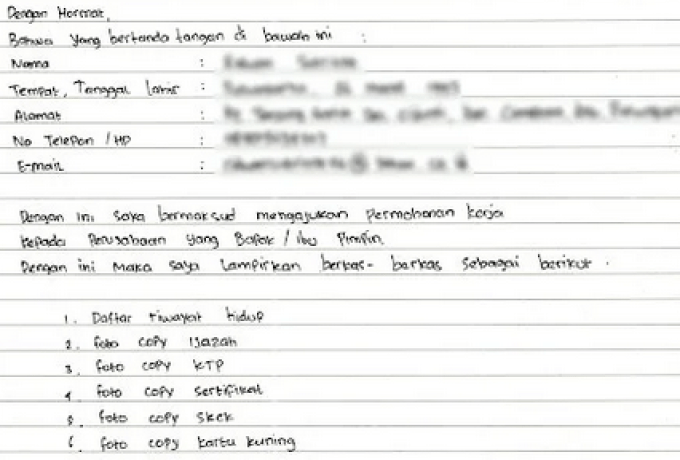 Dengan Hormat,
Bahwa yang bertanda tangan di bawah ini :
Nama :
Tempat, Tanggal lahir :
Alamat :
No Telepon / HP :
E-mail :
Dengan ini saya bermaksud mengajukan permohonan kerja
kepada perusahaan yang Bapak / ibu Pimpin.
Dengan ini Maka saya Lampirkan berkas- barkas sebagai berikut .
1. Daftar riwayat hidup
2. foto copy ijazah
3. foto copy KTP
4 foto copy sertifikat
5. foto copy skck
6. foto copy kartu kuning